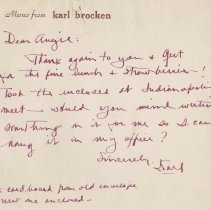 Memo from karl brocken
Dear Angie:
Thank again to you & Gert
for the fine lunch & strawberries!
Took the enclosed at Indianapolis
meet – would you mind writing
something on it for me so I can
hang it in my office?
Sincerely,
Karl
cardboard from old envelope
new one enclosed –